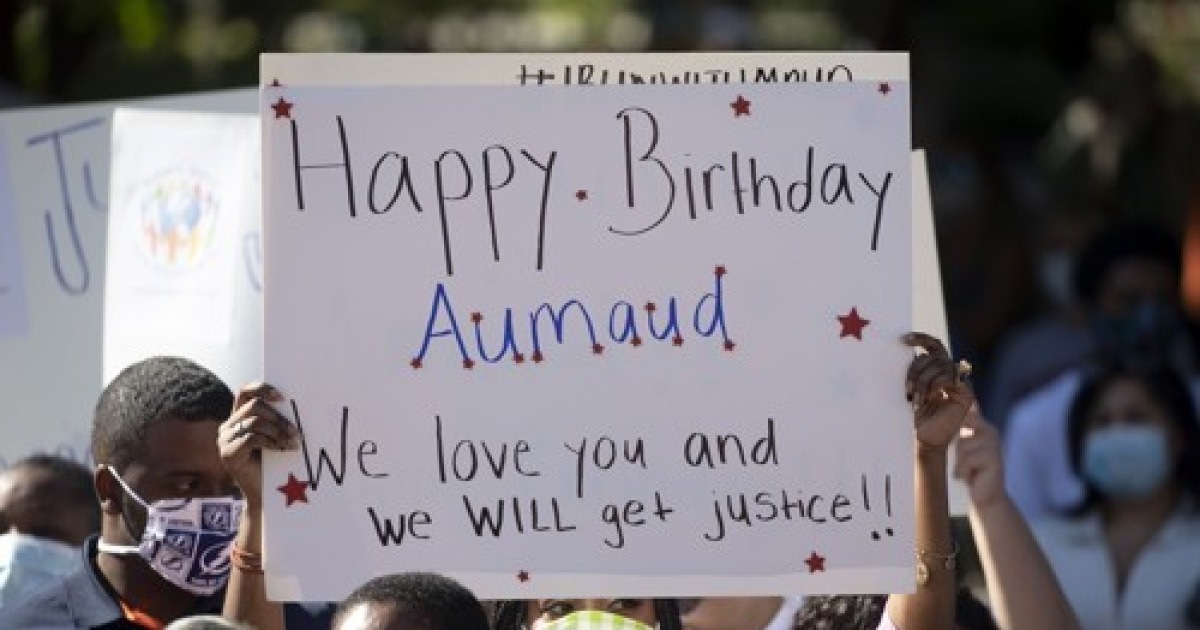 Happy Birthday
Aumaud
We love you and
we WILL get justice!!